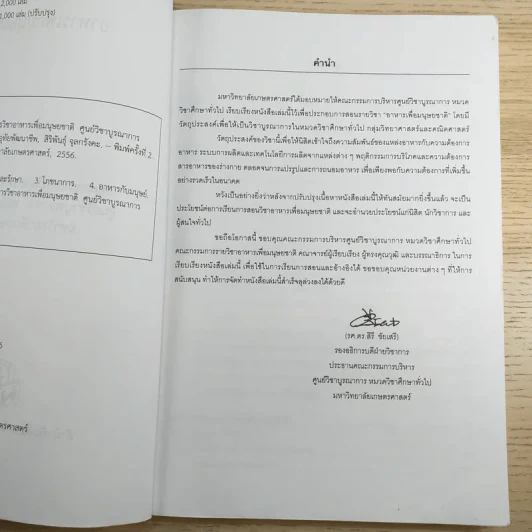 2,000 เล่ม
1,000 เล่ม (ปรับปรุง)
วิชาอาหารเพื่อมนุษยชาติ ศูนย์วิชาบูรณาการ
สิริพันธุ์ จุลกรังคะ. -- พิมพ์ครั้งที่ 2
ลัยเกษตรศาสตร์, 2556.
3. โภชนาการ. 4. อาหารกับมนุษย์.
วิชาอาหารเพื่อมนุษยชาติ ศูนย์วิชาบูรณาการ
คำนำ
มหาวิทยาลัยเกษตรศาสตร์ได้มอบหมายให้คณะกรรมการบริหารศูนย์วิชาบูรณาการ หมวด
วิชาศึกษาทั่วไป เรียบเรียงหนังสือเล่มนี้ไว้เพื่อประกอบการสอนรายวิชา "อาหารเพื่อมนุษยชาติ" โดยมี
วัตถุประสงค์เพื่อให้เป็นวิชาบูรณาการในหมวดวิชาศึกษาทั่วไป กลุ่มวิทยาศาสตร์และคณิตศาสตร์
วัตถุประสงค์ของวิชานี้เพื่อให้นิสิตเข้าใจถึงความสัมพันธ์ของแหล่งอาหารกับความต้องการ
อาหาร ระบบการผลิตและเทคโนโลยีการผลิตจากแหล่งต่าง ๆ พฤติกรรมการบริโภคและความต้องการ
สารอาหารของร่างกาย ตลอดจนการแปรรูปและการถนอมอาหาร เพื่อเพียงพอกับความต้องการที่เพิ่มขึ้น
อย่างรวดเร็วในอนาคต
หวังเป็นอย่างยิ่งว่าหลังจากปรับปรุงเนื้อหาหนังสือเล่มนี้ให้ทันสมัยมากยิ่งขึ้นแล้ว จะเป็น
ประโยชน์ต่อการเรียนการสอนวิชาอาหารเพื่อมนุษยชาติ และจะอำนวยประโยชน์แก่นิสิต นักวิชาการ และ
ผู้สนใจทั่วไป
ขอถือโอกาสนี้ ขอบคุณคณะกรรมการบริหารศูนย์วิชาบูรณาการ หมวดวิชาศึกษาทั่วไป
คณะกรรมการรายวิชาอาหารเพื่อมนุษยชาติ คณาจารย์ผู้เรียบเรียง ผู้ทรงคุณวุฒิ และบรรณาธิการ ในการ
เรียบเรียงหนังสือเล่มนี้ เพื่อใช้ในการเรียนการสอนและอ้างอิงได้ ขอขอบคุณหน่วยงานต่าง ๆ ที่ให้การ
สนับสนุน ทำให้การจัดทำหนังสือเล่มนี้สำเร็จลุล่วงลงได้ด้วยดี
(รศ.ดร.สิรี ชัยเสรี)
รองอธิการบดีฝ่ายวิชาการ
ประธานคณะกรรมการบริหาร
ศูนย์วิชาบูรณาการ หมวดวิชาศึกษาทั่วไป
มหาวิทยาลัยเกษตรศาสตร์